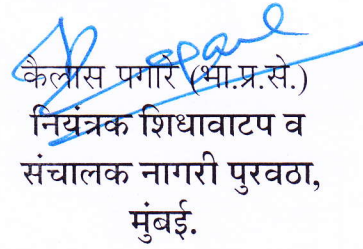 कैलास पगारे (भा.प्र.से.)
नियंत्रक शिधावाटप व
संचालक नागरी पुरवठा,
मुंबई.